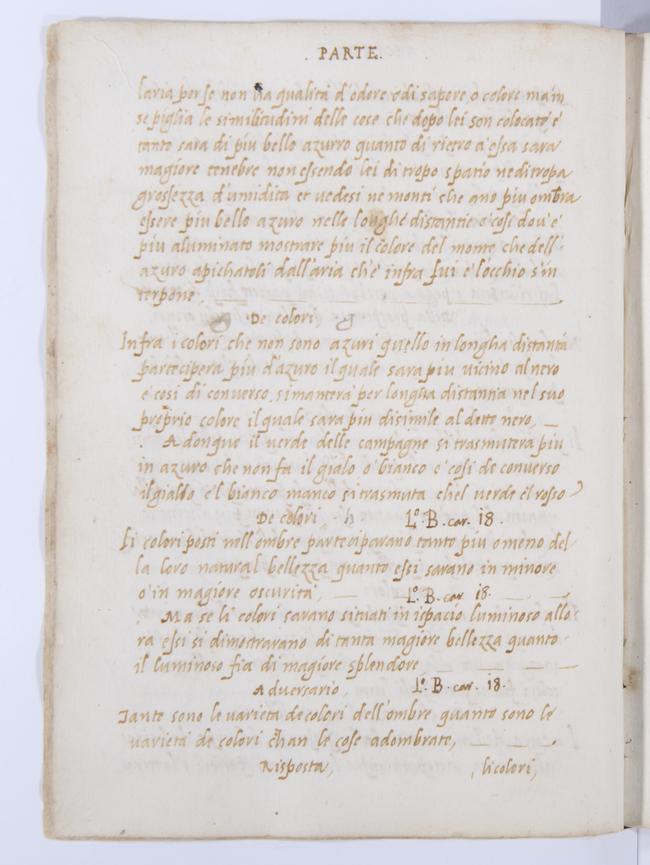 . PARTE.
laria per se non ha qualita d'odore o di sapore o colore ma in
se piglia le similitudini delle cose che dopo lei son colocate e
tanto sara di piu bello azurro quanto di rietro a essa sara
magiore tenebre non essendo lei di tropo spatio ne di tropa
grossezza d'umidita et vedesi ne monti che ano piu ombra
essere piu bello azuro nelle longhe distantie e cosi dov'e
piu aluminato mostrare piu il colore del monte che dell'
azuro apichatoli dall'aria ch'e infra lui e l'occhio s'in
terpone.
De colori
Infra i colori che non sono azuri quello in longha distantia
partecipera piu d'azuro il quale sara piu vicino al nero
e cosi di converso si mantera per longha distantia nel suo
proprio colore il quale sara piu disimile al detto nero,
Adonque il verde delle campagne si trasmutera piu
in azuro che non fa il gialo o bianco e cosi de converso
il giallo e'l bianco manco si trasmuta che'l verde e'l rosso
De colori h Lº. B. car. 18.
Li colori posti nell'ombre parteciparano tanto piu o meno del
la loro natural bellezza quanto essi sarano in minore
o'in magiore oscurita, Lº. B. car 18.
Ma se li colori sarano situati in ispacio luminoso allo
ra essi si dimostrarano di tanta magiore bellezza quanto
il luminoso fia di magiore splendore
Adversario, Lº. B. car. 18.
Tante sono le varieta de colori dell'ombre quanto sono le
varieta de colori ch'an le cose adombrate,
Risposta, li colori,